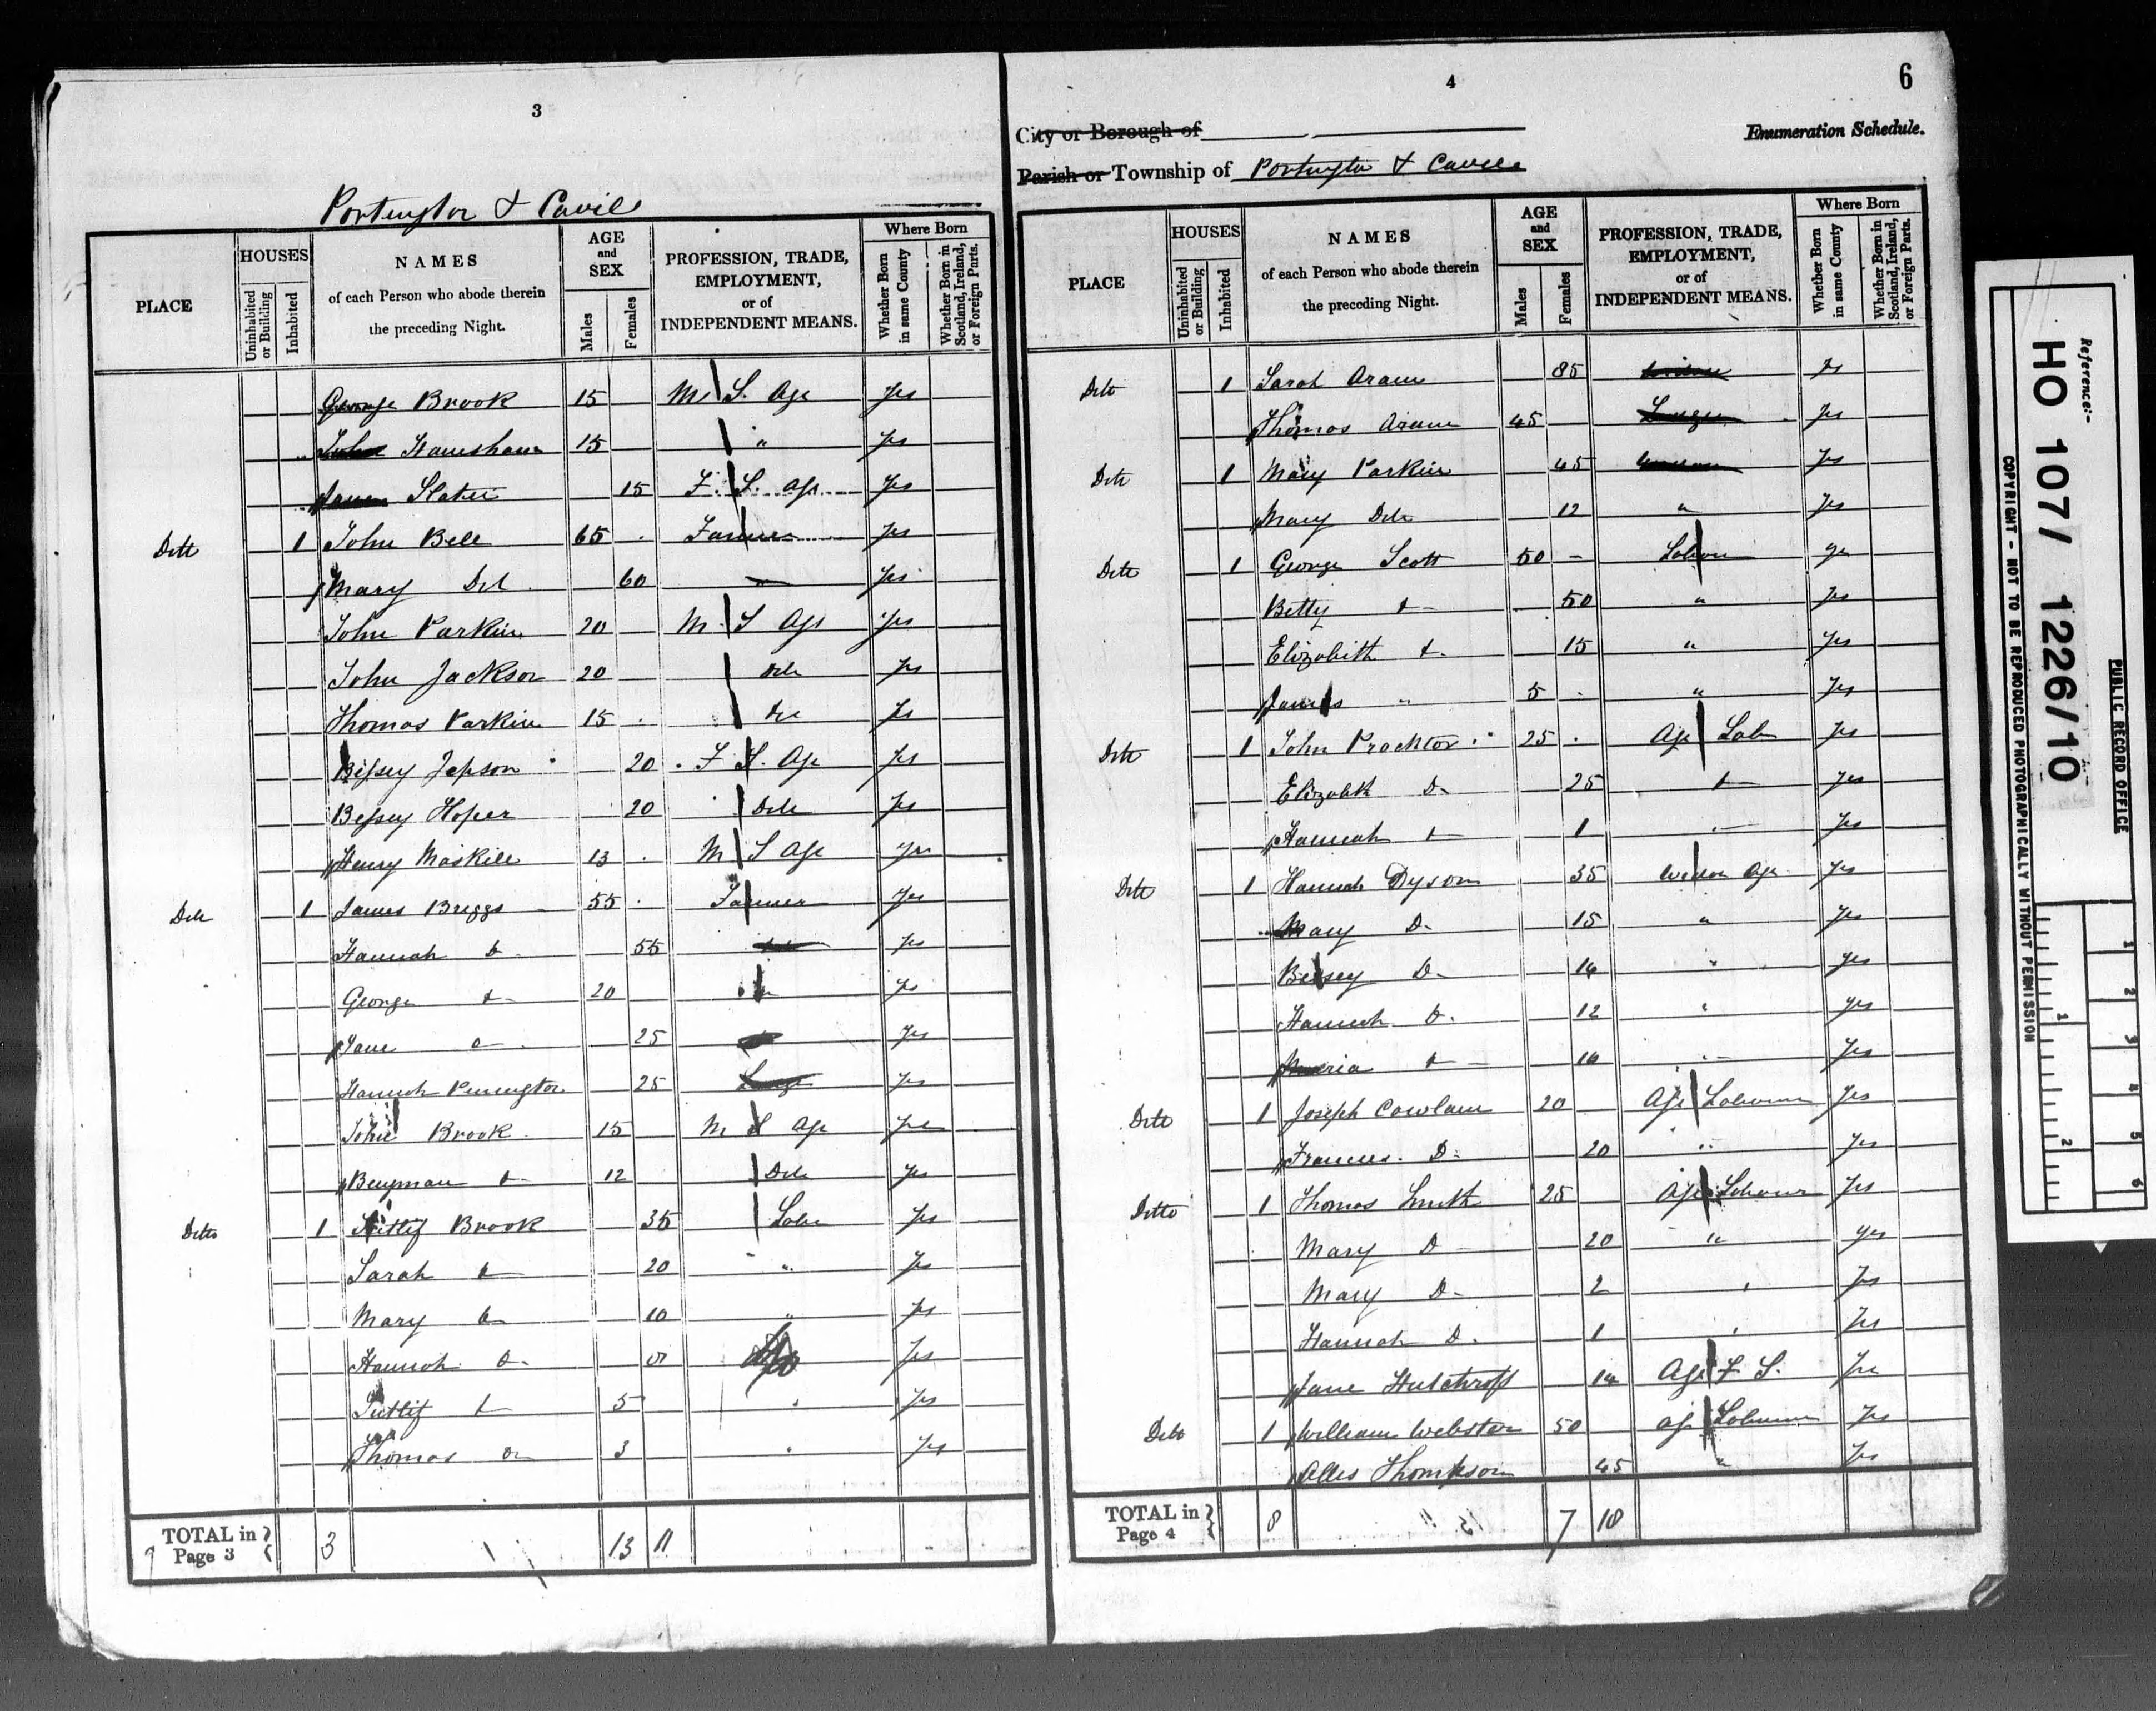 3
Portington & Cavil
PLACE
HOUSES
Uninhabited or Building
Inhabited
NAMES
of each Person who abode therein
the preceding Night.
AGE
and
SEX
Males
Females
PROFESSION, TRADE,
EMPLOYMENT,
or of
INDEPENDENT MEANS.
Where Born
Whether Born in same County
Whether Born in Scotland, Ireland, or Foreign Parts.
George Brook 15 M S. Ag Yes
John Hamshaw 15 " Yes
Slater 15 F. S. Ag. Yes
Ditt 1 John Bell 65 Farmer Yes
Mary Do 60 Yes
John Parkin 20 M. S Ag Yes
John Jackson 20 Do Yes
Thomas Parkin 15 Do Yes
Bessey Jepson 20 F S. Ag Yes
Bessey Hoper 20 Do Yes
Henry Maskill 13 M S Ag Yes
Do 1 James Briggs 55 Farmer Yes
Hannah Do 55 Yes
George Do 20 Yes
Jane Do 25 Yes
Hannah Pennington 25 Yes
John Brook 15 M S Ag Yes
Benjman Do 12 Do Yes
Ditto 1 Sutlif Brook 35 Labr Yes
Sarah Do 20 " Yes
Mary Do 10 " Yes
Hannah Do Yes
Sutlif Do 5 " Yes
Thomas Do 3 " Yes
TOTAL in Page 3 } 3 13 11
4
6
City or Borough of
Enumeration Schedule.
Parish or Township of Portington & Cavil
PLACE
HOUSES
Uninhabited or Building
Inhabited
NAMES
of each Person who abode therein
the preceding Night.
AGE
and
SEX
Males
Females
PROFESSION, TRADE,
EMPLOYMENT,
or of
INDEPENDENT MEANS.
Where Born
Whether Born in same County
Whether Born in Scotland, Ireland, or Foreign Parts.
Ditto 1 Sarah Aram 85 Yes
Thomas Aram 45 Yes
Ditto 1 Mary Parkin 45 Yes
Mary Do 12 " Yes
Ditto 1 George Scott 50 Labour Yes
Betty Do 50 " Yes
Elizabith Do 15 " Yes
James " 5 " Yes
Ditto 1 John Procktor 25 Ag Lab Yes
Elizabth D 25 Do Yes
Hannah Do 1 Yes
Ditto 1 Hannah Dyson 35 Ag Yes
Mary D 15 " Yes
Bessey D 14 " Yes
Hannah D. 12 " Yes
Maria Do 10 Yes
Ditto 1 Joseph Cowlam 20 Ag Labourer Yes
Frances D. 20 " Yes
Ditto 1 Thomas Smith 25 Ag Labour Yes
Mary D 20 " Yes
Mary D 2 Yes
Hannah D. 1 Yes
Jane Hutchroft 14 Ag F S. Yes
Ditto 1 William Webster 50 Ag Labourer Yes
Thompson 45 " Yes
TOTAL in Page 4 } 8 7 18
Reference:-
HO 107/ 1226/10
PUBLIC RECORD OFFICE
COPYRIGHT - NOT TO BE REPRODUCED PHOTOGRAPHICALLY WITHOUT PERMISSION
1 2
1 2 3 4 5 6